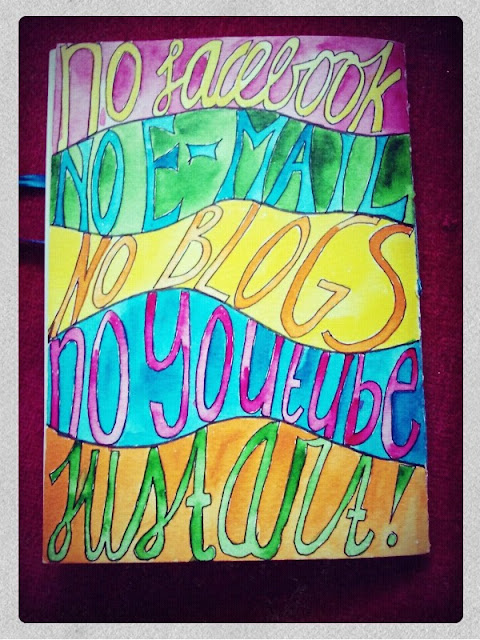 no facebook
NO E-MAIL
NO BLOGS
no youtube
just Art!